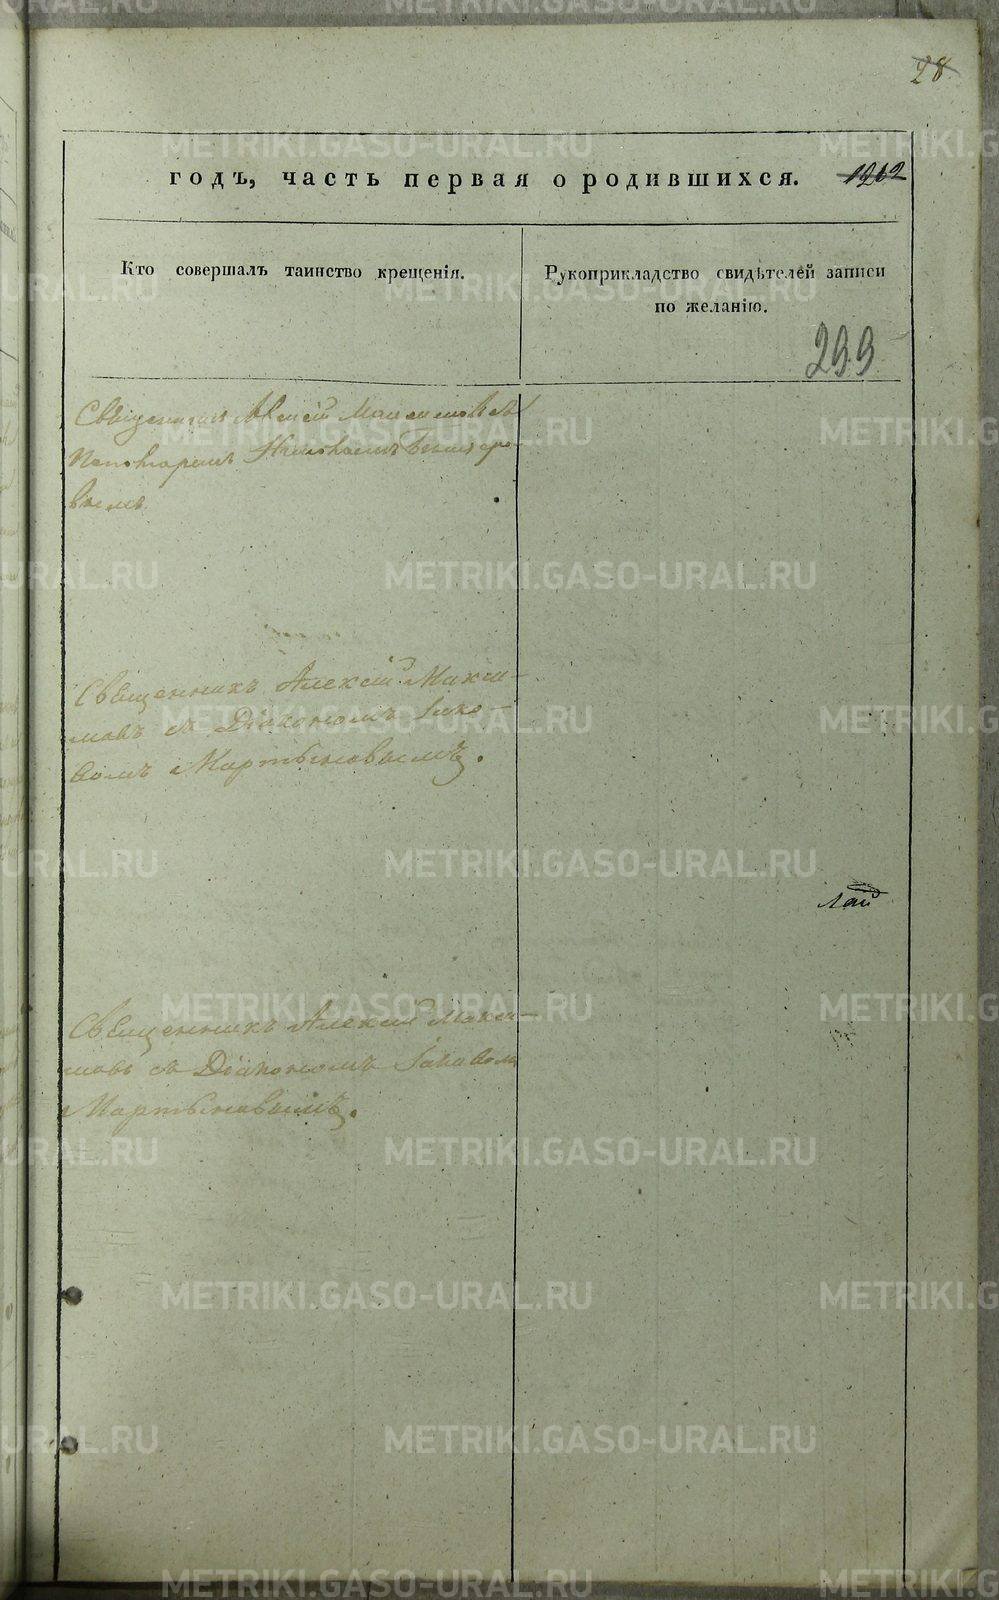 28
годъ, часть первая о родившихся. 1212
Кто совершалъ таинство крещенія.
Рукоприкладство свидѣтелей записи
по желанію.
299
Священникъ Алексій Максимовъ съ
Пономаремъ
вымъ.
Священникъ Алексій Макси-
мовъ съ Діакономъ Іако-
вомъ Мартыновымъ.
Священникъ Алексій Макси-
мовъ съ Діакономъ Іаковом
Мартыновымъ.
METRIKI.GASO-URAL.RU